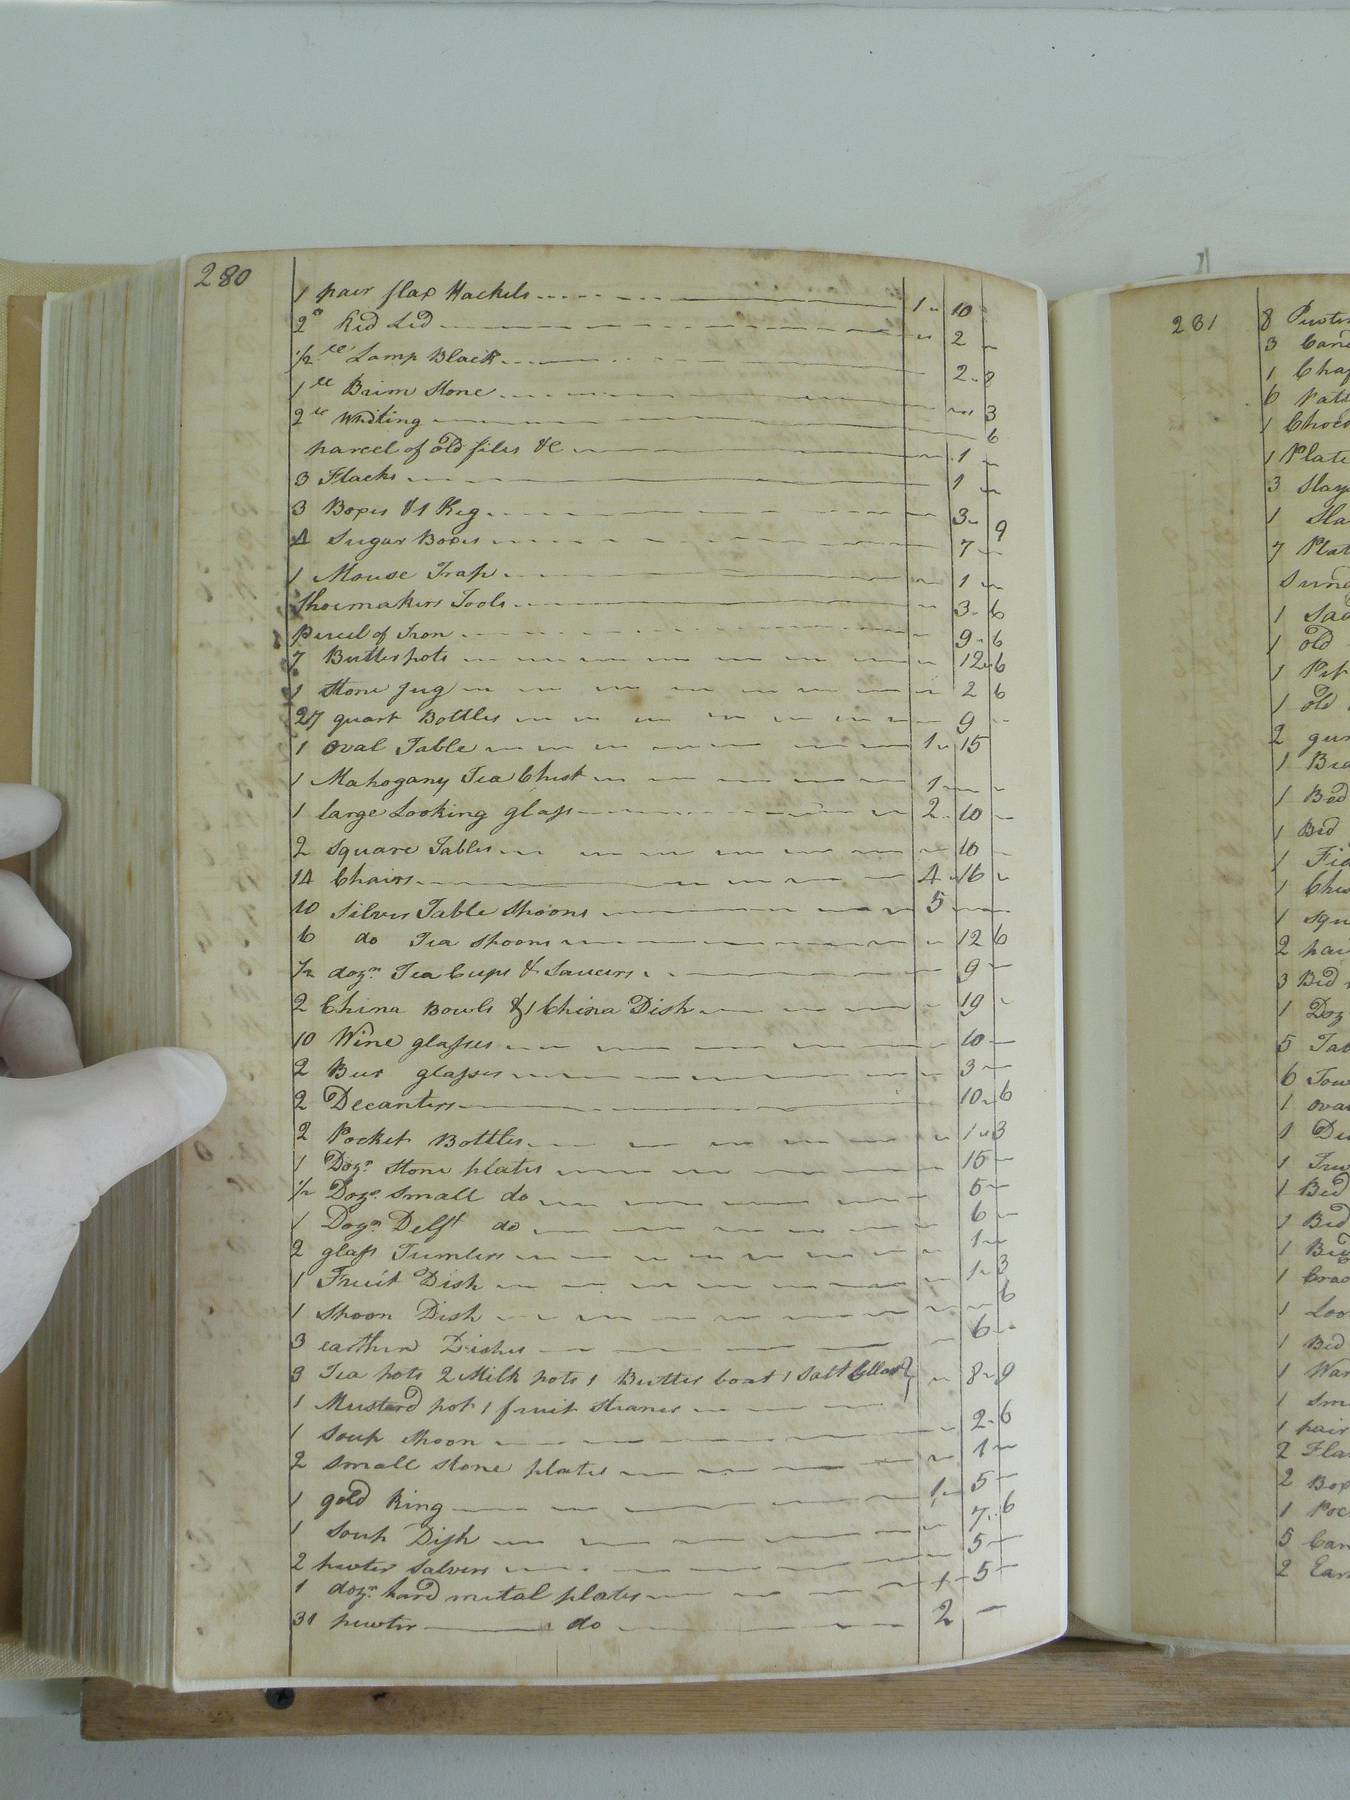 280
1 pair flax Hackels 1 " 10
2 " Red Led " 2 "
1/2 lb Lamp Black 2 - 8
1 lb Brim Stone " 3
2 lb Whiting 6
parcel of old files &c " 1 "
3 Flacks 1 "
3 Boxes & 1 Keg 3 - 9
4 Sugar Boxes 7 -
1 Mouse Trap " 1 "
Shoemakers Tools " 3 - 6
Parcel of Iron 9 - 6
7 Butter pots " 12 " 6
1 Stone Jug " 2 6
27 quart Bottles 9 -
1 Oval Table 1 " 15
1 Mahogany Tea Chest 1 - "
1 large Looking glass 2 - 10 -
2 Square Tables " 10 -
14 Chairs 4 " 16 "
10 Silver Table Spoons 5 -
6 do Tea Spoons " 12 6
1/2 dozn Tea Cups & Saucers 9 -
2 China Bowls & 1 China Dish " 19 "
10 Wine glasses 10 -
2 Beer glasses 3 -
2 Decanters 10 " 6
2 Pocket Bottles " 1 " 3
1 Dozn Stone plates 15 -
1/2 Dozn Small do 5 -
1 Dozn Delft do 6 -
2 glass Tumlers 1 -
1 Fruit Dish 1 - 3
1 Spoon Dish 6
3 earthen Dishes 6 -
3 Tea pots 2 Milk pots 1 Butter boat 1 Salt Cellar } " 8 " 9
1 Mustard pot 1 fruit Straner
1 Soup Spoon 2 - 6
2 Small Stone plates 1 -
1 gold Ring 1 - 5 -
1 Soup Dish 7 - 6
2 pewter Salvers 5 -
1 dozn hard metal plates 1 - 5 -
31 pewter do 2 -
281
8
3
1
6
1
1 Plate
3
1
7
1
1 old
1
1 old
2
1
1 Bed
1 Bed
1
1
1
2
3 Bed
1 Doz
5
6
1
1
1
1 Bed
1 Bed
1
1
1
1 Bed
1
1
1 pair
2
2
1
5
2